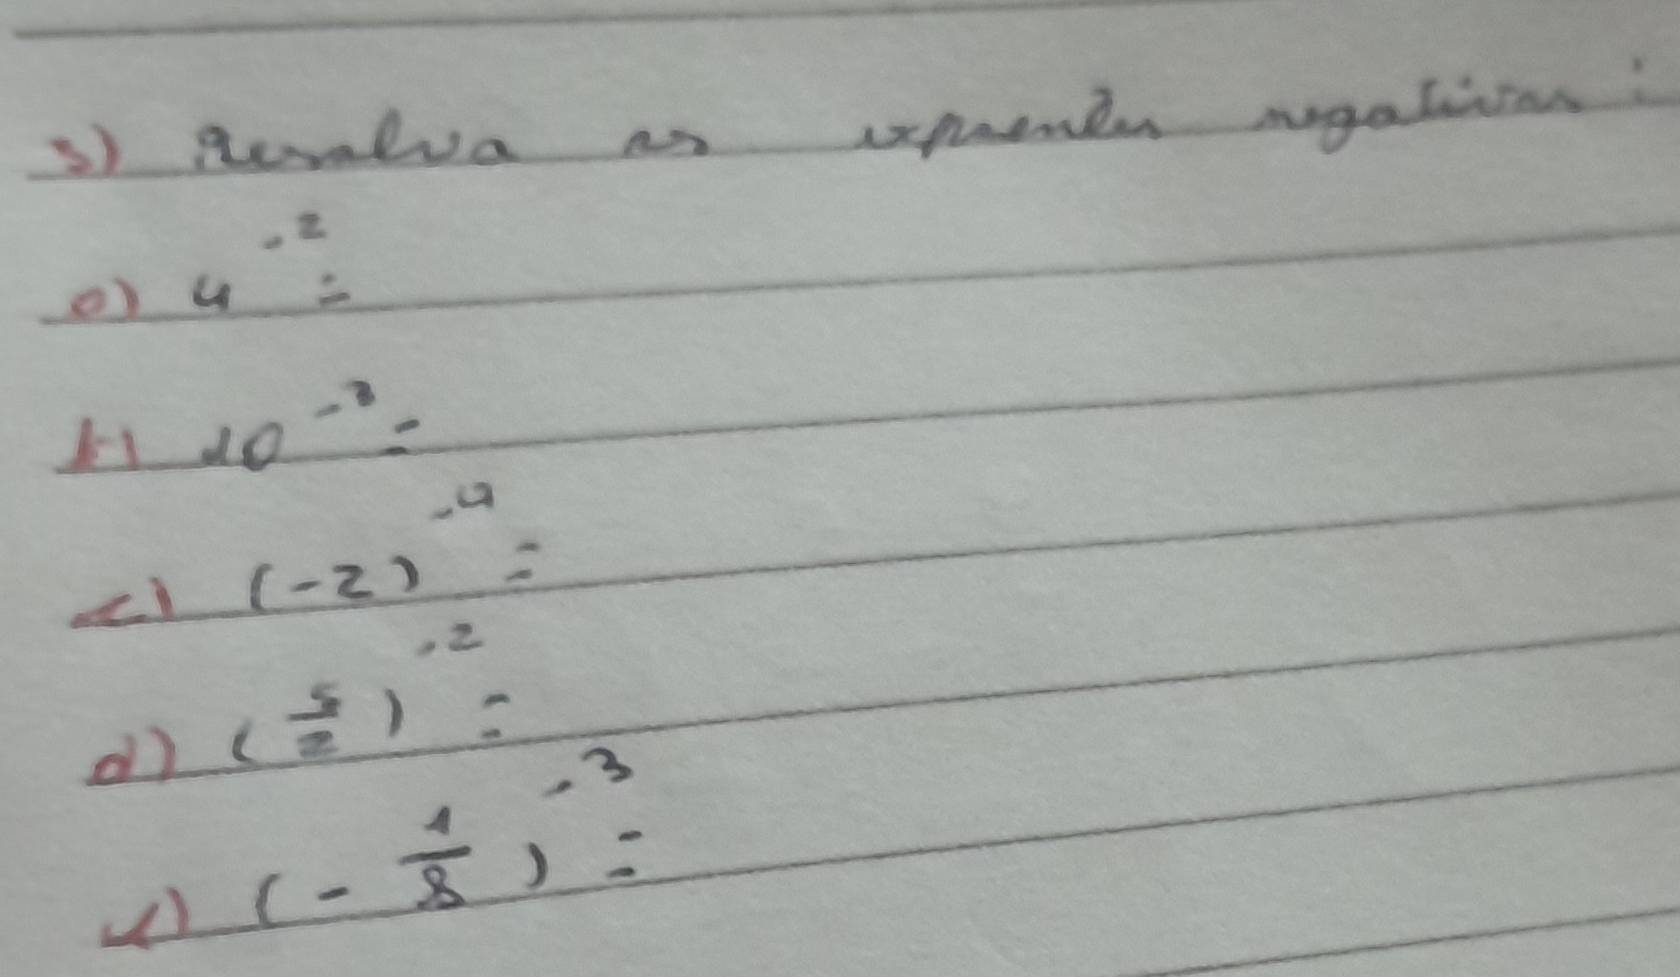 3) Resolva as expoentes negativas:
a) 4⁻² =
b) 10⁻³ =
c) (-2)⁻⁴ =
d) (5/2)⁻² =
e) (- 1/8)⁻³ =